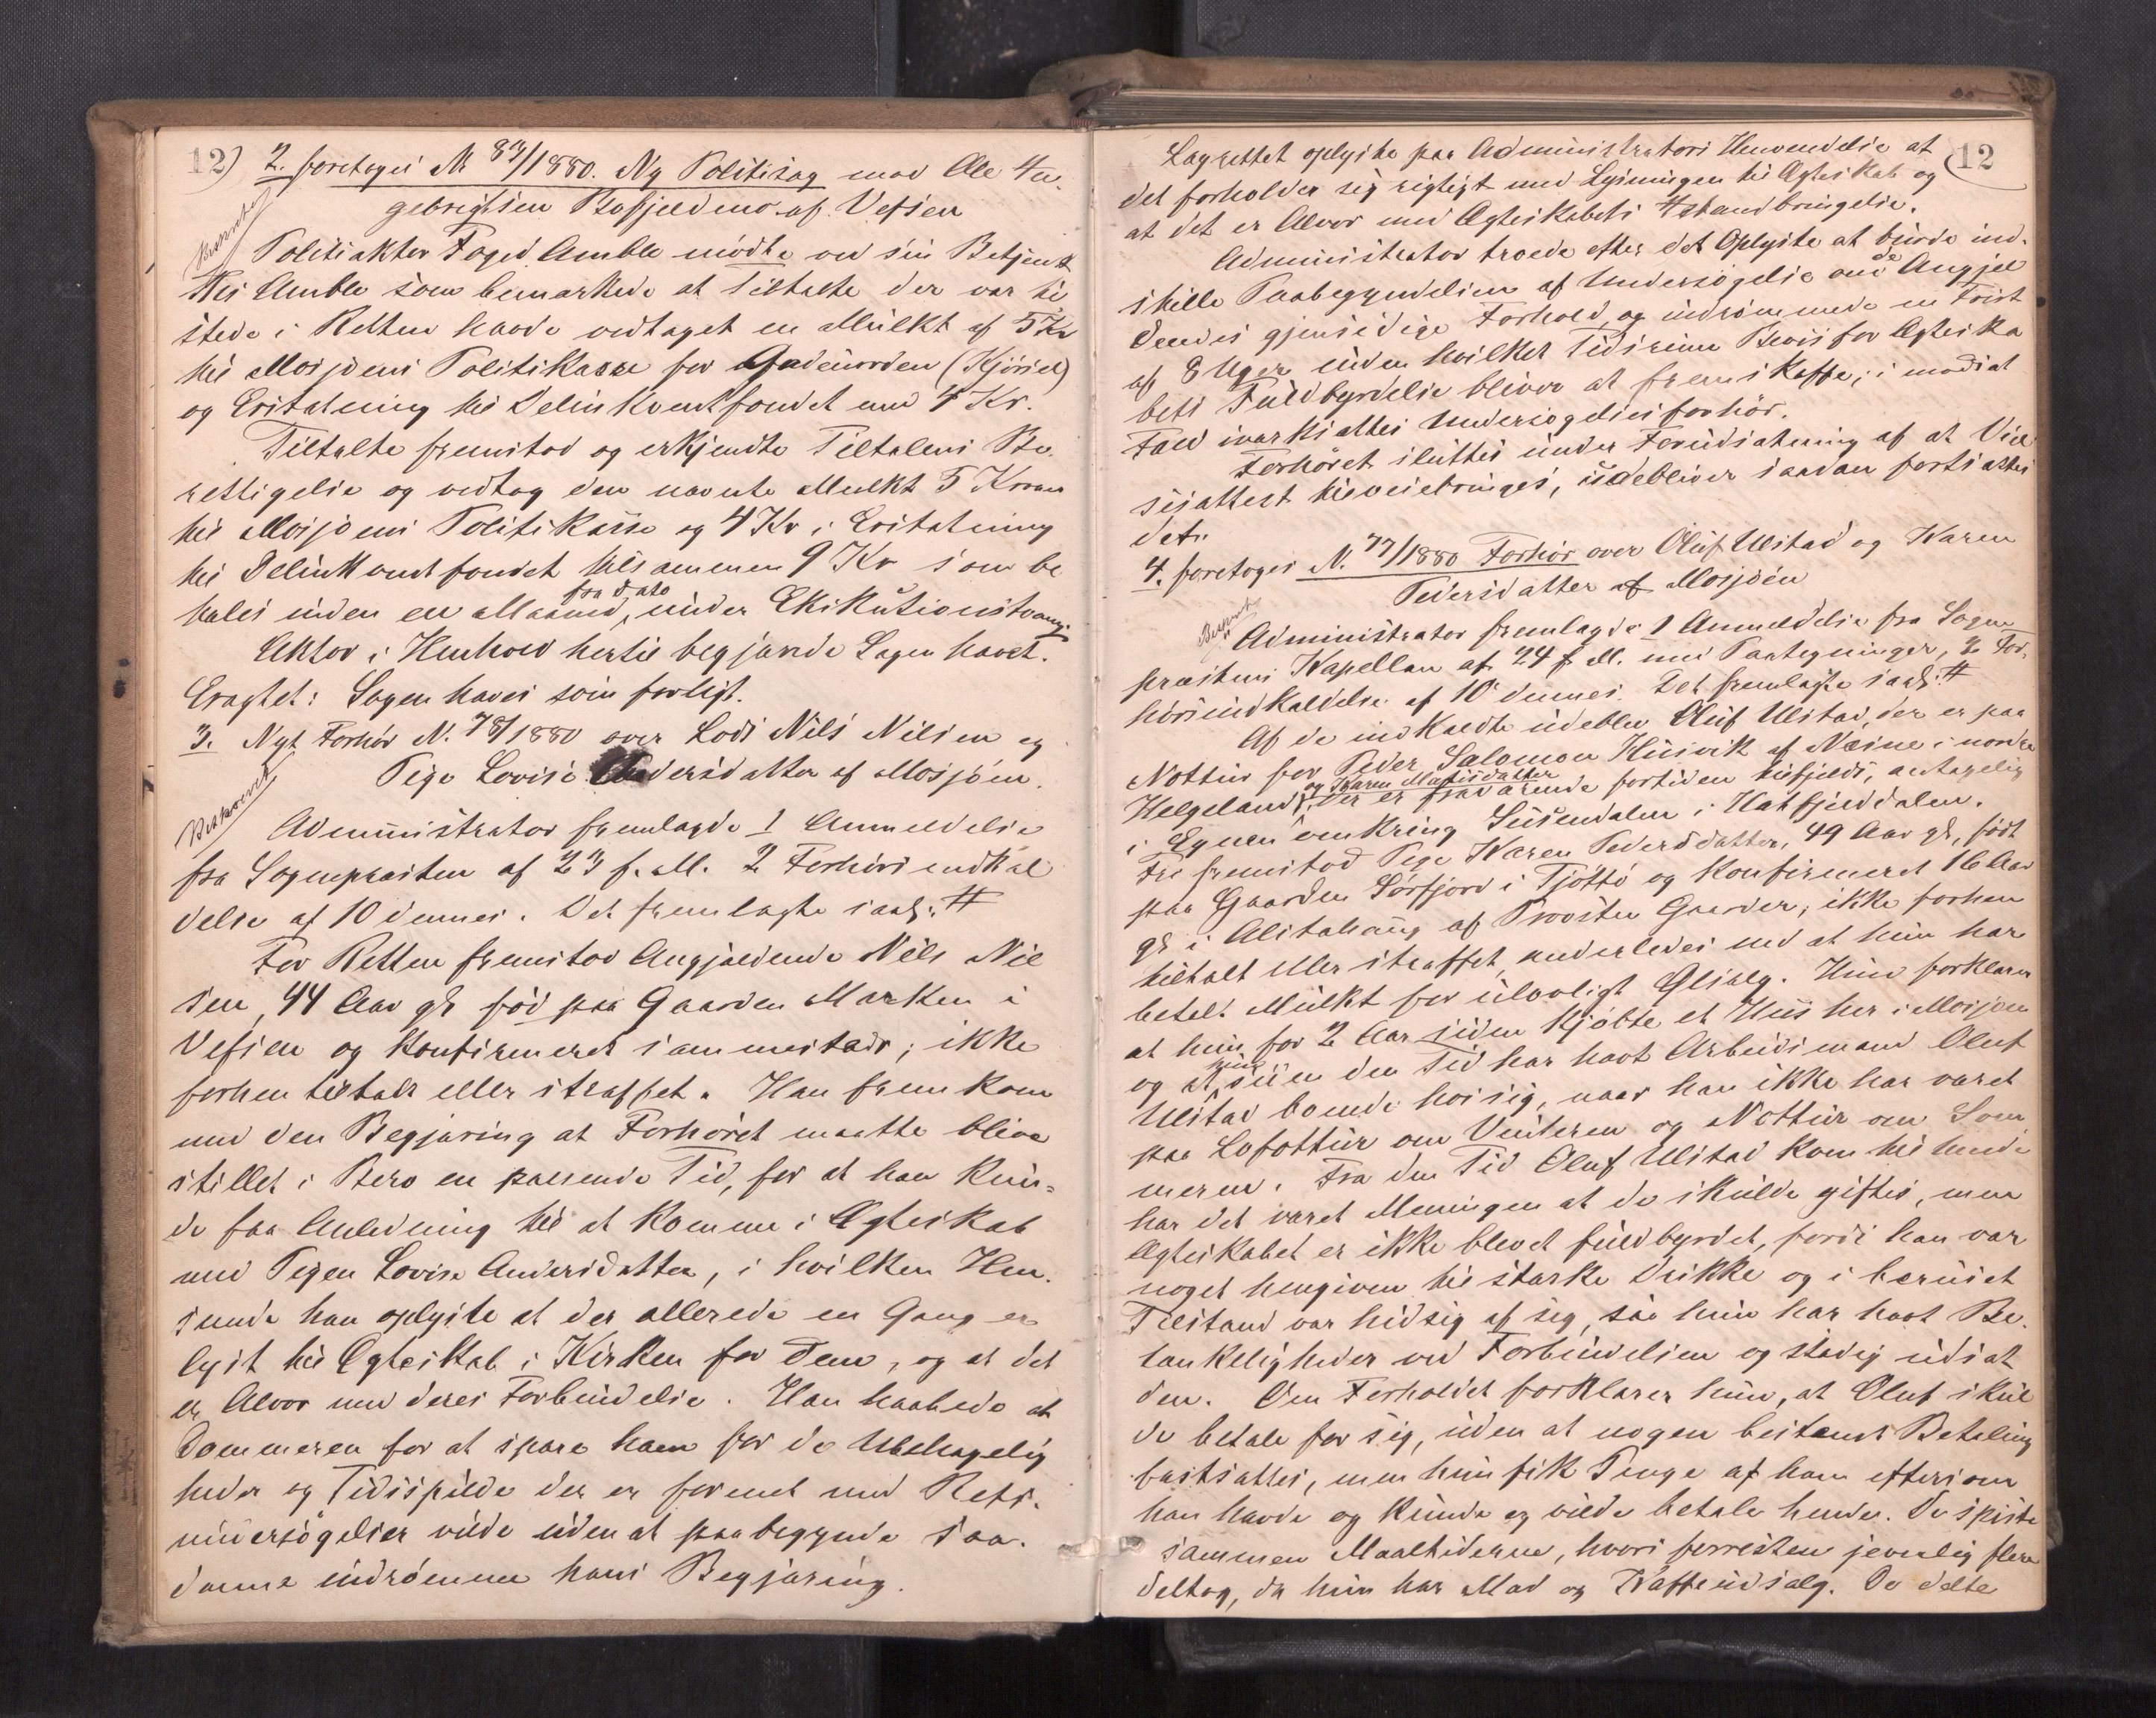 12) 2. foretoges N 83/1880. Ny Politisag mod Ole An-
gebrigtsen Bafjeldmo af Vefsen
Politiaktor Foged Amble mödte ved sin Betjent
Hr Amble som bemærkede at Tiltalte der var til
stede i Retten havde vedtaget en Mulkt af 5 Kr
til Mosjöens Politikasse for Gadeuorden (Kjörsel)
og Erstatning til Delinkventfondet med 4 Kr.
Tiltalte fremstod og erkjendte Tiltalens Be-
rettigelse og vedtog den nævnte Mulkt 5 Kroner
til Mosjöens Politikasse og 4 Kr i Erstatning
til Delinkventfondet tilsammen 9 Kr som be
tales inden en Maaned fra Dato, under Eksekutionstvang.
Aktor i Henhold hertil begjærede Sagen hævet.
Eragtet: Sagen hæves som forligt.
3. Nyt Forhör N. 78/1880 over Lods Nils Nilsen og
Pige Lovise Andersdatter af Mosjöen.
Beskrevet
Administrator fremlagde 1 Anmeldelse
fra Sognepræsten af 23 f. M. 2 Forhörsindkal
delse af 10 dennes. Det fremlagte saal: #
For Retten fremstod Angjældende Nils Nil
sen, 44 Aar gl. född paa Gaarden Marken i
Vefsen og konfirmeret sammesteds; ikke
forhen tiltalt eller straffet. Han fremkom
med den Begjæring at Forhöret maatte blive
stillet i Bero en passende Tid, for at han kun-
de faa Anledning til at komme i Ægteskab
med Pigen Lovise Andersdatter, i hvilken Hen-
seende han oplyste at der allerede en Gang er
lyst til Ægteskab i Kirken for Dem, og at det
er Alvor med deres Forbindelse. Han haabede at
Dommeren for at spare ham for de Ubehagelig
heder og Tidsspilde der er forenet med Rets-
undersögelser vilde uden at paabegynde saa-
danne indrömme hans Begjæring.
12
Lagrettet oplyste paa Administrators Henvendelse at
det forholder sig rigtigt med Lysningen til Ægteskab og
at det er Alvor med Ægteskabets Istandbringelse.
Administrator troede efter det Oplyste at burde ind-
stille Paabegyndelsen af Undersögelse om de Angjæl
dendes gjensidige Forhold, og indrömmede en Frist
af 8 Uger inden hvilket Tidsrum Bevis for Ægteska
bets Fuldbyrdelse bliver at fremskaffe; i modsat
Fald iværksættes Undersögelsesforhör.
Forhöret sluttes under Forudsætning af at Viel
sesattest tilveiebringes, udebliver saadan fortsættes
det.
4. foretoges N. 77/1880 Forhör over Oluf Ulstad og Karen
Pedersdatter af Mosjöen
Administrator fremlagde 1 Anmeldelse fra Sogne
præstens Kapellan af 24 f. M. med Paategninger, 2 For-
hörsindkaldelse af 10 dennes. Det fremlagte saal: #
Af de indkaldte udeblev Oluf Ulstad, der er paa
Nottur for Peder Salomon Husvik af Næsne i nordre
Helgeland, og Karen Mathisdatter der er fraværende fortiden tilfjelds, antagelig
i Egnen omkring Susendalen i Hatfjelddalen.
Frit fremstod Pige Karen Pedersdatter, 49 Aar gl., födt
paa Gaarden Sörfjord i Tjöttö og konfirmeret 16 Aar
gl. i Alstahaug af Provsten Gaarder; ikke forhen
tiltalt eller straffet anderledes end at hun har
betalt Mulkt for ulovligt Ölsalg. Hun forklarer
at hun for 2 Aar siden kjöbte et Hus her i Mosjöen
og at hun siden den Tid har havt Arbeidsmand Oluf
Ulstad boende hos sig, naar han ikke har været
paa Lofottur om Vinteren og Nottur om Som
meren. Fra den Tid Oluf Ulstad kom til hende
har det været Meningen at de skulde giftes, men
Ægteskabet er ikke blevet fuldbyrdet, fordi han var
noget hengiven til stærke Drikke og i beruset
Tilstand var hidsig af sig, saa hun har havt Be-
tænkeligheder ved Forbindelsen og stadig udsat
den. Om Forholdet forklarer hun, at Oluf skul
de betale for sig, uden at nogen bestemt Betaling
fastsattes, men hun fik Penge af ham eftersom
han havde og kunde og vilde betale hende. De spiste
sammen Maaltiderne, hvori forresten jevnlig flere
deltog, da hun har Mad og Kaffeudsalg. De delte